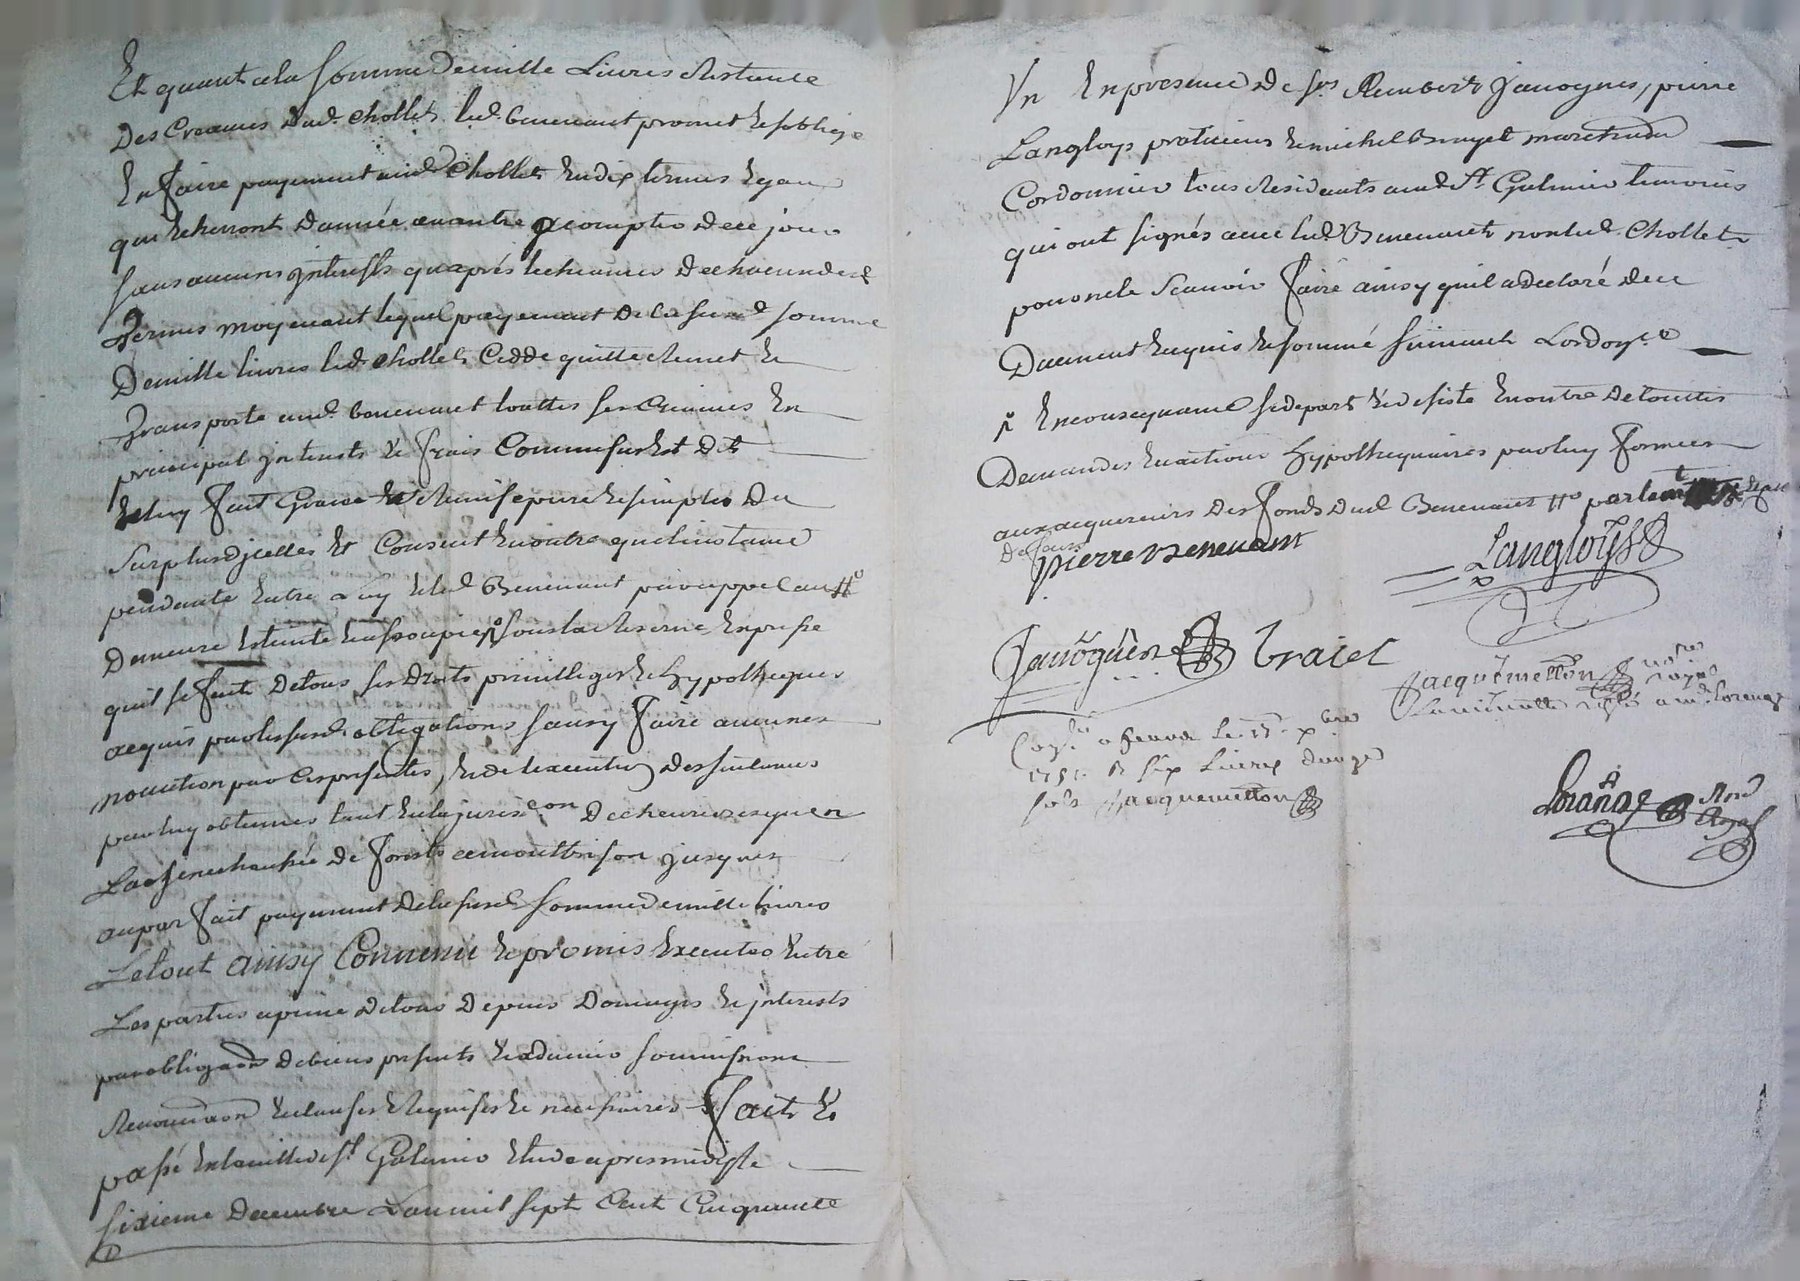 Et quant a la somme de mille Livres Restante
Des Creances dud. Chollet led. benevant promet et soblige
En faire payement aud. Chollet en dix termes egaux
qui echerront dannée en autre a compter de ce jour
sans aucuns interests qu'aprés lecheance de chacun desd.
Termes moyenant lequel payement de la susd. somme
De mille livres led. Chollet Cedde quitte Remet et
Transporte aud. benevant touttes ses Creances En
principal interests et frais Commis et
et luy fait Grace et Remise pure et simple du
Surplus dicelles Et Consent en outre que linstance
pendante Entre Luy et led. Benevant par appel au
Demeure Eteinte et assoupie sous la Reserve Expresse
quil se fait de tous ses Droits privilleges et hypotheques
acquis par les susd. obligations sans y faire aucunes
novation par Ces presentes, et de lexecution des sentences
par luy obtenues tant en la jurison de cheurieres qu'en
La senechaussée de forests a montbrison jusques
au parfait payement de la susd. somme de mille livres
Le tout ainsy Convenu et promis Executer Entre
Les parties a peine de tous Depens Domages et interests
par obligaon de biens presents et advenir soumissions
Renonciaon et clauses Requises et necessaires fait et
passé En la ville de St. Galmier Etude apres midy le
sixieme Decembre Lan mil sept Cent Cinquante
Un En presence de srs Rembert Janognes, pierre
Langloys praticiens et michel Brayet marchand
Cordonnier tous Residents aud. St. Galmier temoins
qui ont signés avec led. Benevant non led. Chollet
pour ne le Scavoir faire ainsy quil a declaré de ce
Duement Enquis et sommé suivant Lordonce
En consequance se depart et desiste En outre de touttes
Demandes en action hypothequaires par luy formées
aux acquereurs des fonds dud. Benevant parlemt
de
pierre Benevant
Langloys
Janoguën
Braiet
Jacquemetton nores royal
La minutte
Collé a feurs Le 15 xbre
1751. R six Livres douze
sols Jacquemetton
Lorange Nore
Royal